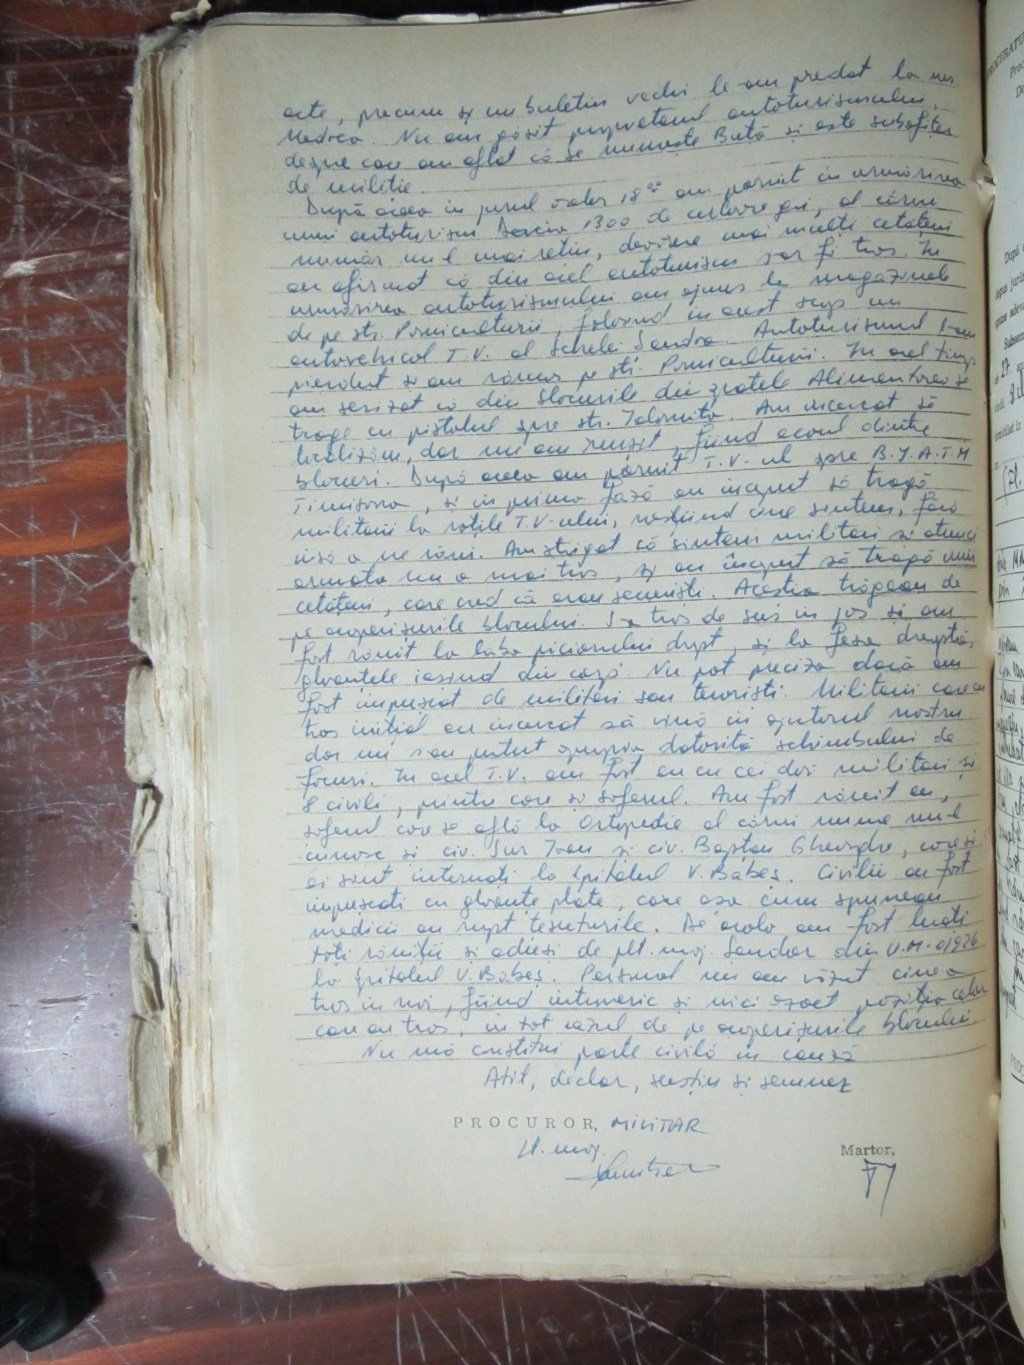 acte, precum și un buletin vechi le-am predat la
Medico. Nu am găsit proprietarul autoturismului,
despre care am aflat că se numește Buță și este subofițer
de miliție.
După aceea în jurul orelor 18 am pornit în urmărirea
unui autoturism Dacia 1300 de culoare gri, al cărui
număr nu-l mai rețin, deoarece mai mulți cetățeni
au afirmat că din acel autoturism s-ar fi tras. În
urmărirea autoturismului am ajuns la magazinele
de pe str. Pomiculturii, folosind în acest scop un
autovehicol T.V. al Schelei Sandra. Autoturismul l-am
pierdut și am rămas pe str. Pomiculturii. În acel timp
am sesizat că din blocurile din spatele Alimentarei se
trage cu pistolul spre str. Ialomița. Am încercat să
localizăm, dar nu am reușit, fiind ecoul dintre
blocuri. După aceea am pornit T.V.-ul spre B.J.A.T.M
Timișoara, și în prima fază au început să tragă
militarii la roțile T.V-ului, neștiind cine suntem, fără
însă a ne răni. Am strigat că suntem militari și atunci
armata nu a mai tras, și au început să tragă unii
cetățeni, care cred că erau securiști. Aceștia trăgeau de
pe acoperișurile blocului. S-a tras de sus în jos și am
fost rănit la laba piciorului drept, și la fesa dreaptă,
gloanțele ieșind din coapsă. Nu pot preciza dacă am
fost împușcat de militari sau teroriști. Militarii care au
tras inițial au încercat să vină în ajutorul nostru
dar nu s-au putut apropia datorită schimbului de
focuri. În acel T.V. am fost eu cu cei doi militari și
8 civili, printre care și șoferul. Am fost rănit eu,
șoferul care se află la Ortopedie al cărui nume nu-l
cunosc și civ. Sur Ioan și civ. Baștan Gheorghe, care și
ei sunt internați la Spitalul V. Babeș. Civilii au fost
împușcați cu gloanțe plate, care așa cum spuneau
medicii au rupt țesuturile. De acolo am fost luați
toți răniții și aduși de plt. maj. Sandor din U.M. 01926
la Spitalul V. Babeș. Personal nu am văzut cine a
tras în noi, fiind întuneric și nici exact poziția celor
care au tras, în tot cazul de pe acoperișurile blocului.
Nu mă constitui parte civilă în cauză
Atît, declar, susțin și semnez
PROCUROR, MILITAR
Martor,
lt. maj.